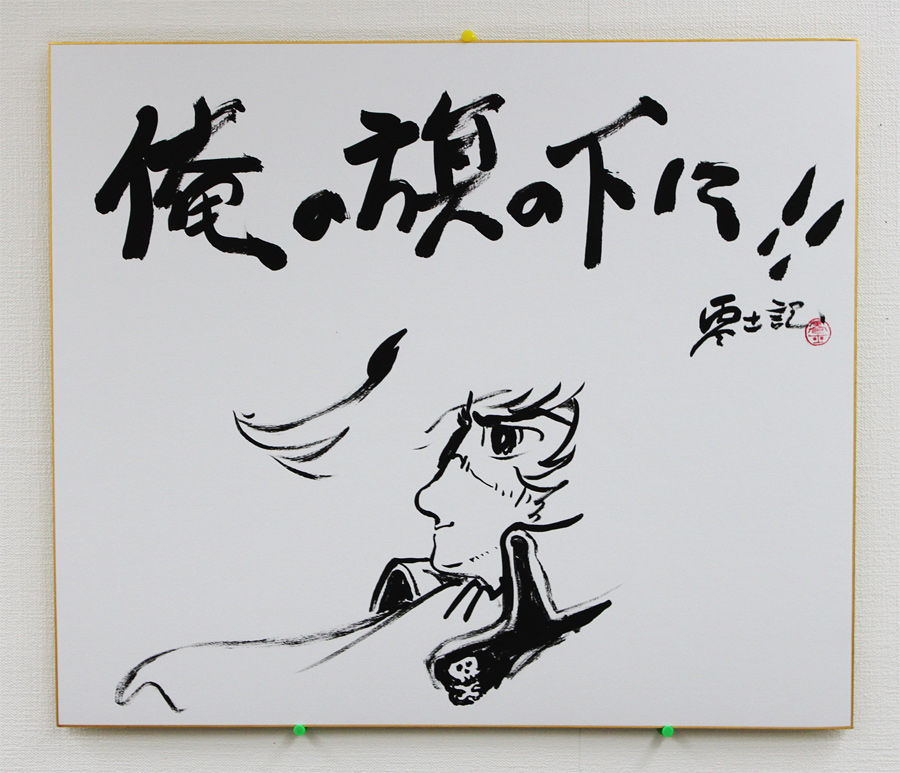 俺の旗の下に!!
零士記